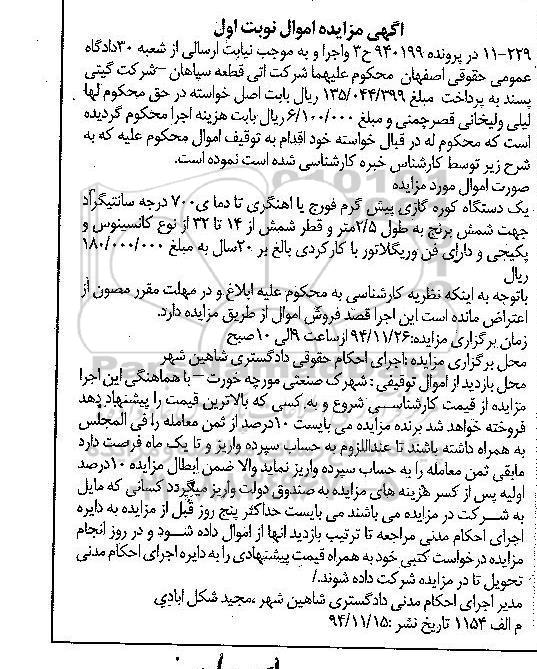 آگهی مزایده اموال نوبت اول
۱۱-۲۲۹ در پرونده ۹۴۰۱۹۹ ح۳ واجرا و به موجب نیابت ارسالی از شعبه ۳۰دادگاه
عمومی حقوقی اصفهان محکوم علیهما شرکت اتی قطعه سپاهان -شرکت گیتی
پسند به پرداخت مبلغ ۱۳۵/۰۴۴/۳۹۹ ریال بابت اصل خواسته در حق محکوم لها
لیلی ولیخانی قصرچمنی و مبلغ ۶/۱۰۰/۰۰۰ ریال بابت هزینه اجرا محکوم گردیده
است که محکوم له در قبال خواسته خود اقدام به توقیف اموال محکوم علیه که به
شرح زیر توسط کارشناس خبره کارشناسی شده است نموده است.
صورت اموال مورد مزایده
یک دستگاه کوره گازی پیش گرم فورج یا اهنگری تا دما ی۷۰۰ درجه سانتیگراد
جهت شمش برنج به طول ۲/۵متر و قطر شمش از ۱۴ تا ۳۲ از نوع کانسینوس و
پکیجی و دارای فن وریگلاتور با کارکردی بالغ بر ۲۰سال به مبلغ ۱۸۰/۰۰۰/۰۰۰
ریال
باتوجه به اینکه نظریه کارشناسی به محکوم علیه ابلاغ و در مهلت مقرر مصون از
اعتراض مانده است این اجرا قصد فروش اموال از طریق مزایده دارد.
زمان برگزاری مزایده:۹۴/۱۱/۲۶ ازساعت ۹الی ۱۰صبح
محل برگزاری مزایده :اجرای احکام حقوقی دادگستری شاهین شهر
محل بازدید از اموال توقیفی : شهرک صنعتی مورچه خورت - با هماهنگی این اجرا
مزایده از قیمت کارشناسی شروع و به کسی که بالاترین قیمت را پیشنهاد دهد
فروخته خواهد شد برنده مزایده می بایست ۱۰درصد از ثمن معامله را فی المجلس
به همراه داشته باشند تا عنداللزوم به حساب سپرده واریز و تا یک ماه فرصت دارد
مابقی ثمن معامله را به حساب سپرده واریز نماید والا ضمن ابطال مزایده ۱۰درصد
اولیه پس از کسر هزینه های مزایده به صندوق دولت واریز میگردد کسانی که مایل
به شرکت در مزایده می باشند می بایست حداکثر پنج روز قبل از مزایده به دایره
اجرای احکام مدنی مراجعه تا ترتیب بازدید انها از اموال داده شود و در روز انجام
مزایده درخواست کتبی خود به همراه قیمت پیشنهادی را به دایره اجرای احکام مدنی
تحویل تا در مزایده شرکت داده شوند./
مدیر اجرای احکام مدنی دادگستری شاهین شهر ،مجید شکل ابادی
م الف ۱۱۵۴ تاریخ نشر :۹۴/۱۱/۱۵